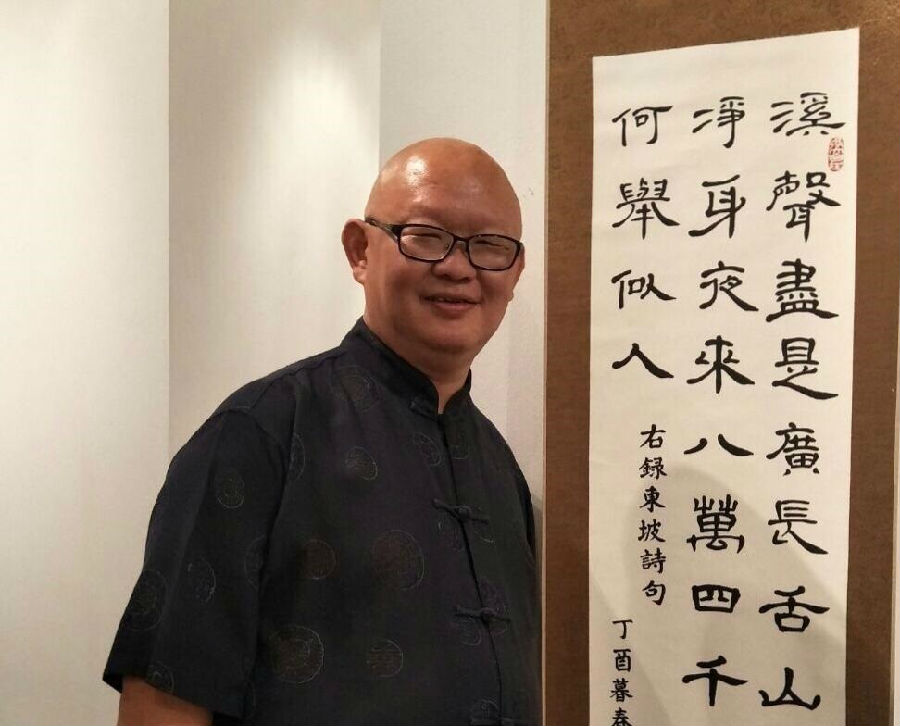 溪聲盡是廣長舌山
凈身夜來八萬四千
何舉似人
右録東坡詩句
丁酉暮春